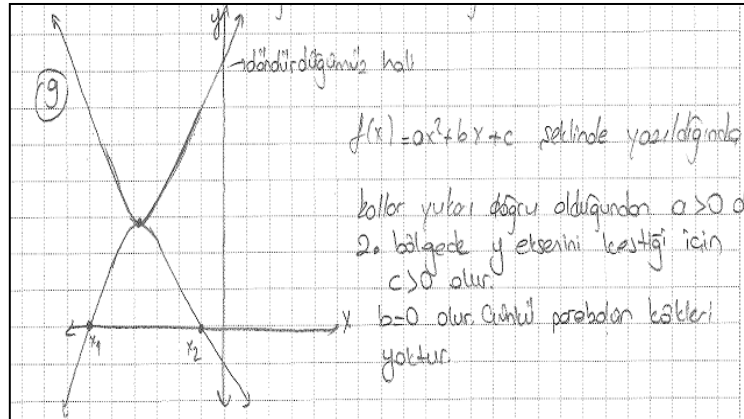 y
döndürdüğümüz hali
9
f(x)=ax²+bx+c şeklinde yazıldığında
kollar yukarı doğru olduğundan a>0 o
2. bölgede y eksenini kestiği için
c>0 olur.
x
b=0 olur. Çünkü parabolün kökleri
yoktur.
x₁
x₂